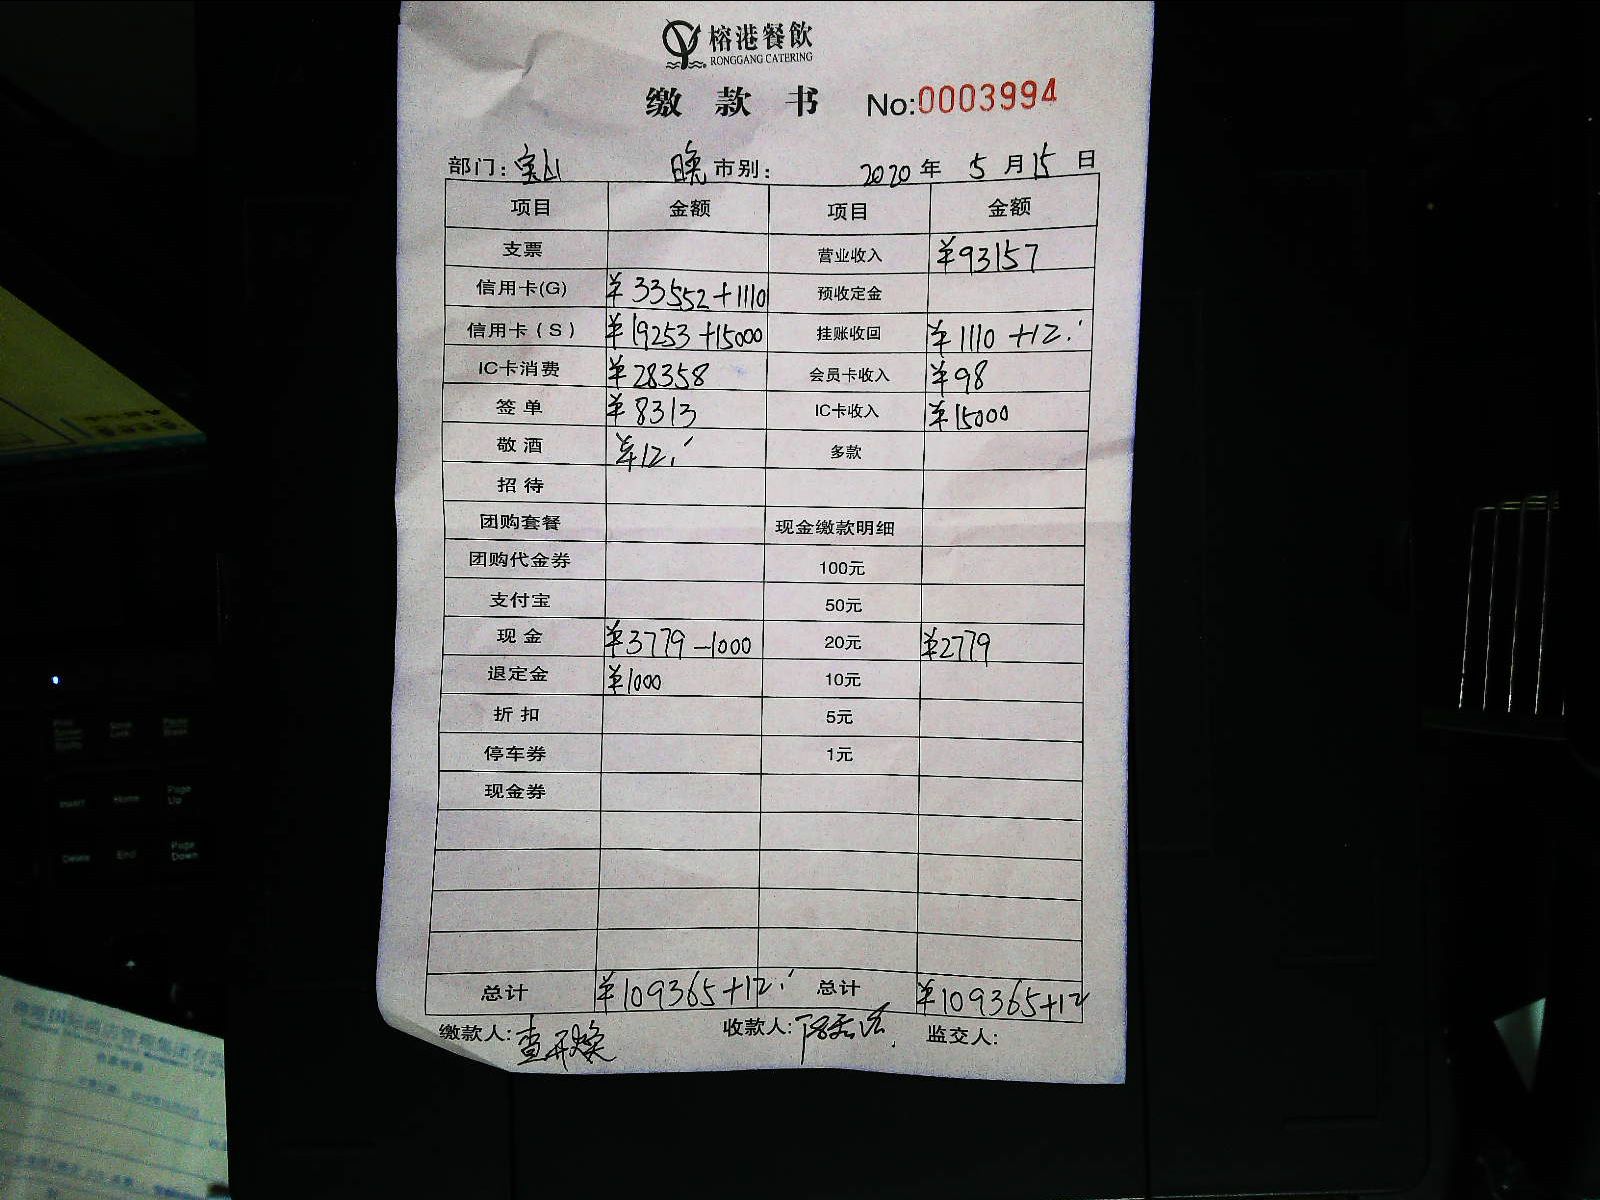 榕港餐飲
RONGGANG CATERING
缴款书 No:0003994
部门:宝山 晚市别: 2020年5月15日
项目 金额 项目 金额
支票 营业收入 ¥93157
信用卡(G) ¥33552+1110 预收定金
信用卡(S) ¥19253+15000 挂账收回 ¥1110+12.
IC卡消费 ¥28358 会员卡收入 ¥98
签单 ¥8313 IC卡收入 ¥15000
敬酒 ¥12. 多款
招待
团购套餐 现金缴款明细
团购代金券 100元
支付宝 50元
现金 ¥3779-1000 20元 ¥2779
退定金 ¥1000 10元
折扣 5元
停车券 1元
现金券
总计 ¥109365+12. 总计 ¥109365+12
缴款人: 收款人: 监交人:
Home
Page Up
Delete End Page Down